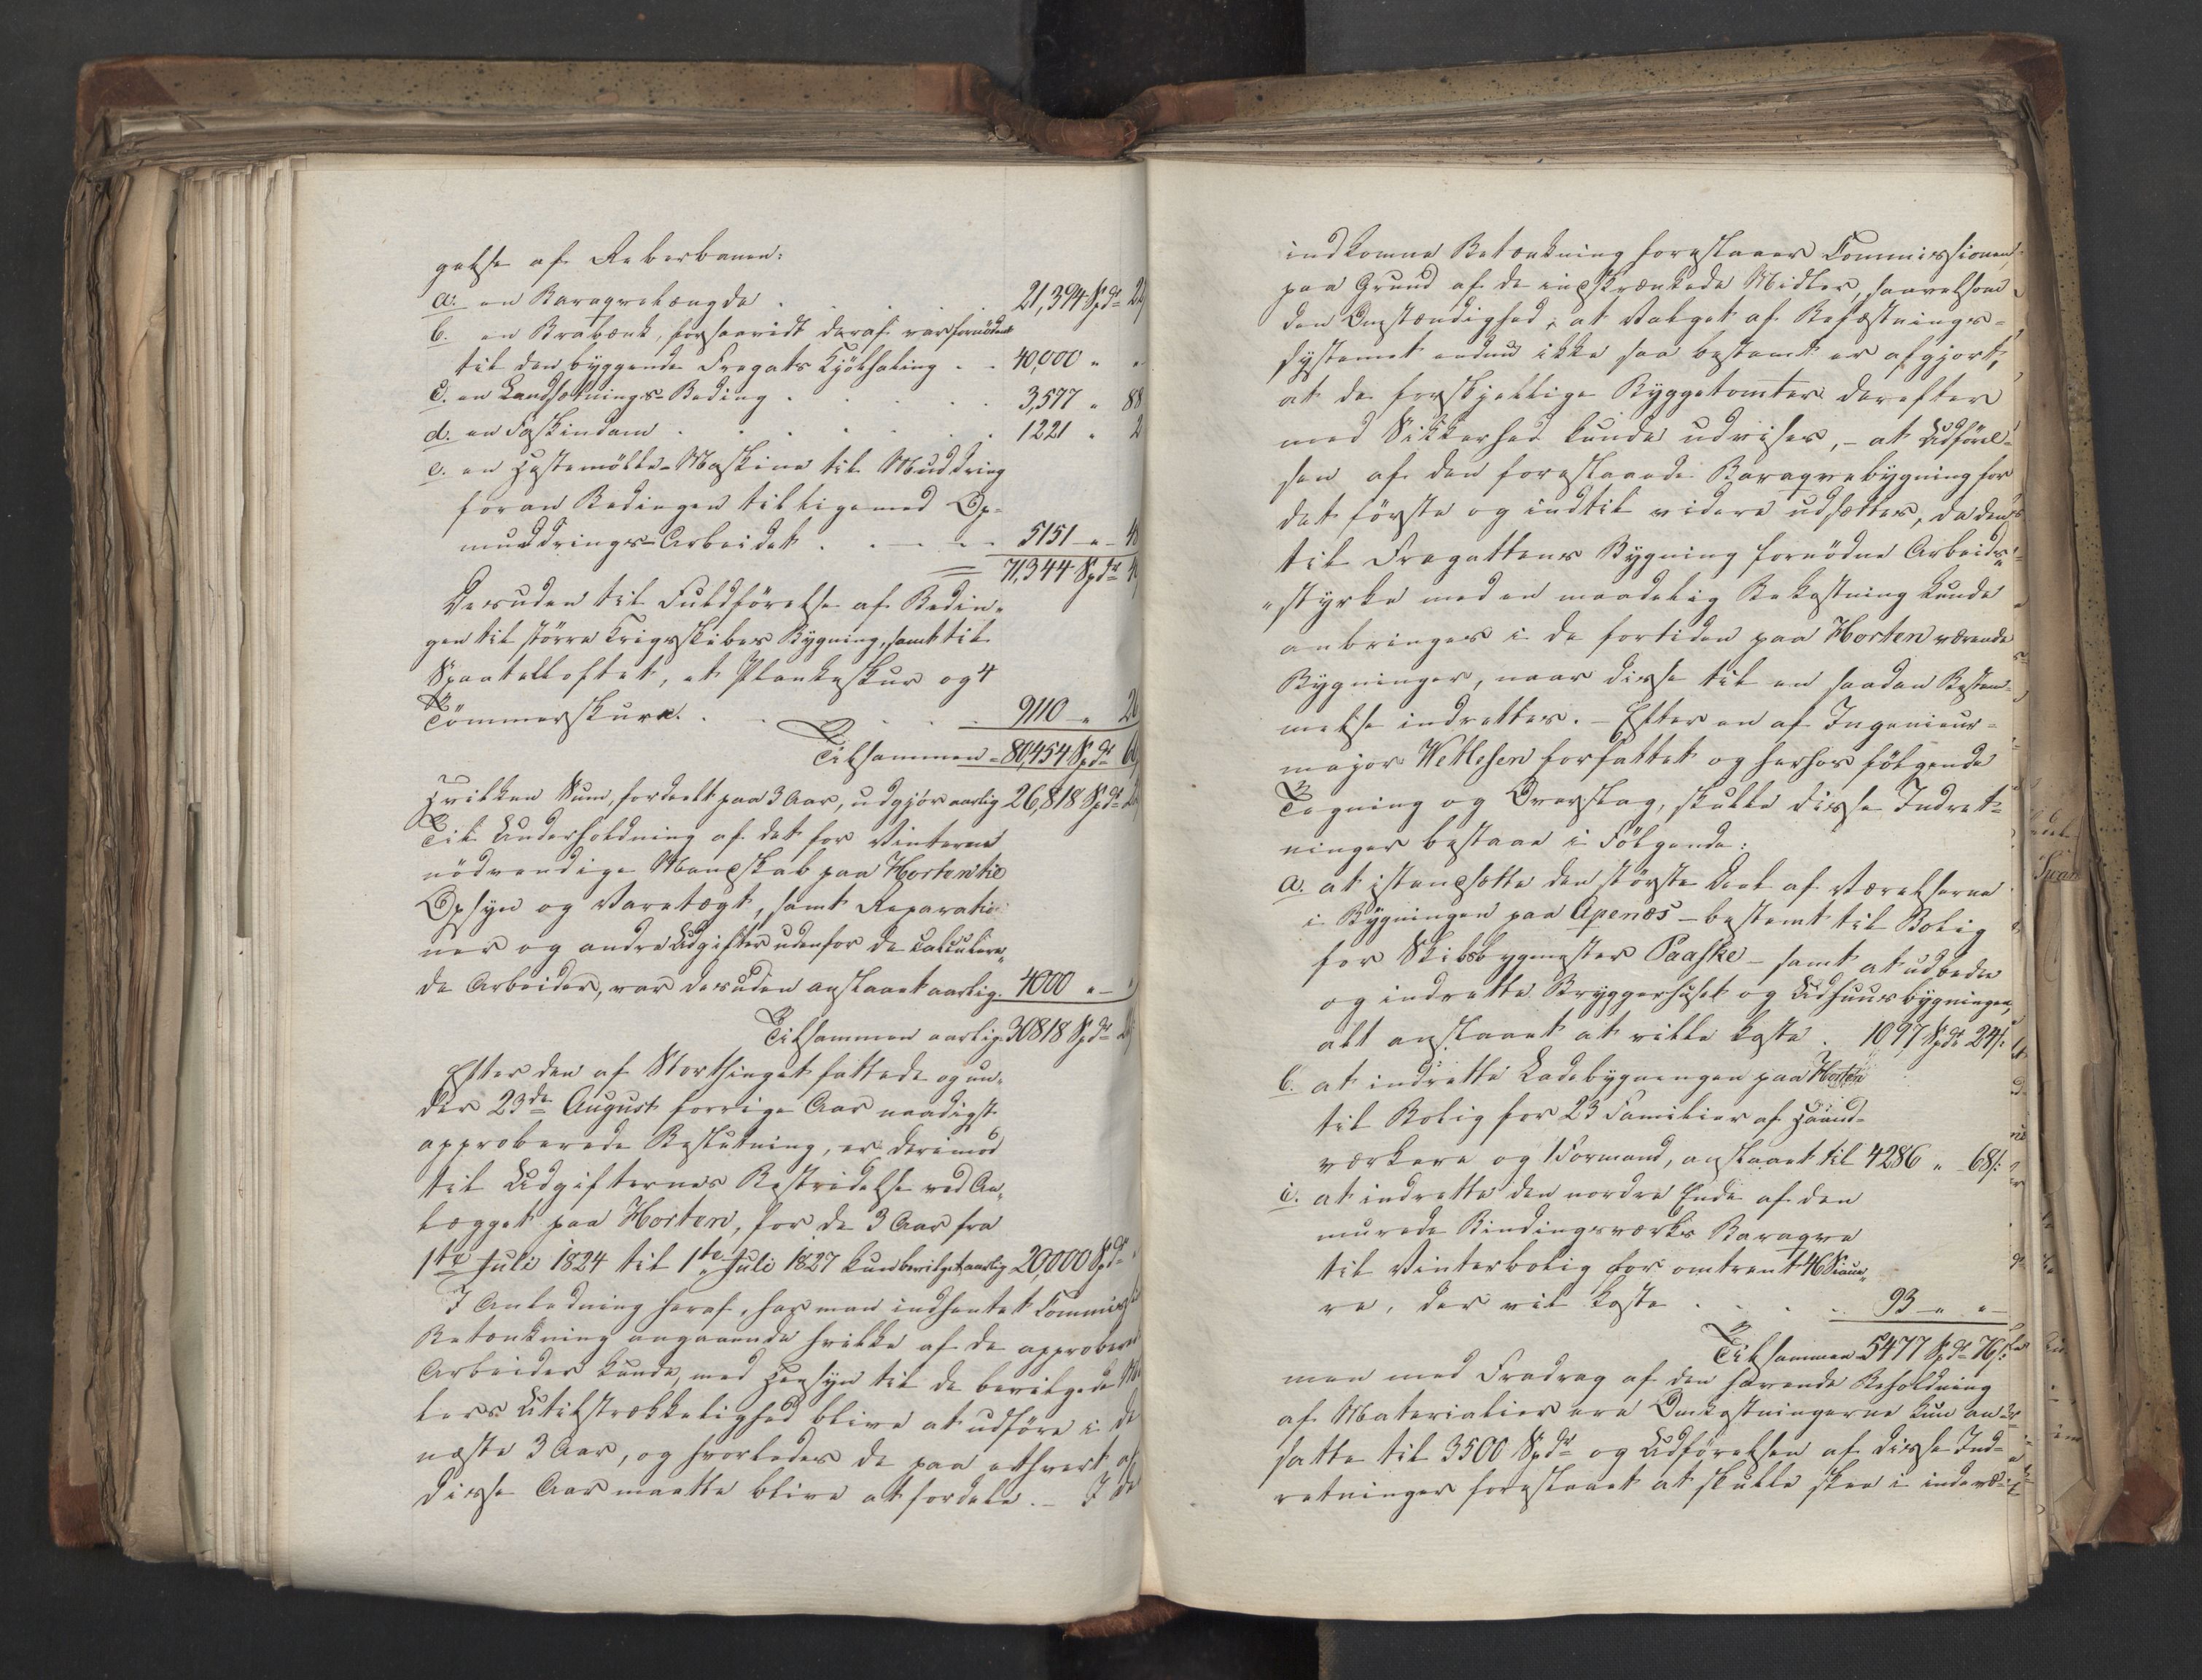 gelse af Reberbanen:
a. en Baraqvelængde . . . . . 21,394 Spdr 2
b. en Brabænk, forsaavidt deraf var fornöden
til den byggende Fregats Kjölhaling . . 40,000 " "
c. en Landsætnings-Beding . . . . . 3,577 " 88
d. en Faskindam . . . . . . 1221 " 2
e. en Hestemölle-Maskine til Muddring
foran Bedingen tilligemed Op-
muddrings-Arbeidet . . . 5151 " 48
71,344 Spdr 4
Desuden til Fuldförelse af Bedin-
gen til större Krigsskibes Bygning, samt til
Spanteloftet, et Plankeskur og 4
Tömmerskure. . . . . 9110 " 20
Tilsammen 80,454 Spdr 6
hvilken Sum, fordeelt paa 3 Aar, udgjör aarlig 26,818 Spdr 2
Til Underholdning af det for Vinteren
nödvendige Mandskab paa Horten til
Opsyn og Varetægt, samt Reparatio
ner og andre Udgifter udenfor de calculere-
de Arbeider, var desuden anslaaet aarlig. 4000 "
Tilsammen aarlig 30818 Spdr 2
Efter den af Storthinget fattede og un-
der 23de August forrige Aar naadigst
approberede Beslutning, er derimod
til Udgifternes Bestridelse ved An-
lægget paa Horten, for de 3 Aar fra
1ste Juli 1824 til 1ste Juli 1827 kun bevilget aarlig 20,000 Spdr
I Anledning heraf, har man indhentet Commiss
Betænkning angaaende hvilke af de approbere
Arbeider kunde, med Hensyn til de bevilgede Mi
lers Utilstrækkelighed blive at udföre i de
næste 3 Aar, og hvorledes de paa ethvert af
disse Aar maatte blive at fordele. – I de
indkomne Betænkning foreslaaer Commissionen,
paa Grund af de indskrænkede Midler, saavelsom
den Omstændighed, at Valget af Befæstnings-
systemet endnu ikke saa bestemt er afgjort,
at de forskjellige Byggetomter derefter
med Sikkerhed kunde udvises, – at Udförel-
sen af den foreslaaede Baraqvebygning for
det förste og indtil videre udsættes, da den
til Fregattens Bygning fornödne Arbeids-
styrke med en maadelig Bekostning kunde
anbringes i de fortiden paa Horten værende
Bygninger, naar disse til en saadan Bestem-
melse indrettes. – Efter en af Ingenieur-
major Wetlesen forfattet og herhos fölgende
Tegning og Overslag, skulle disse Indret-
ninger bestaae i Fölgende:
a. at istandsætte den störste Deel af Værelserne
i Bygningen paa Apenæs – bestemt til Bolig
for Skibsbygmester Paaske – samt at udbedre
og indrette Bryggerhuset og Udhuusbygningen,
alt anslaaet at ville koste . 1097 Spdr 24 s:
b. at indrette Ladebygningen paa Horten
til Bolig for 23 Familier af Haand-
værkere og 1 Formand, anslaaet til 4286 " 68 s:
c. at indrette den nordre Ende af den
murede Bindingsværks Baraqve
til Vinterbolig for omtrent 46 Siaue-
re, der vil koste . . . . 93 " "
Tilsammen 5477 Spdr 76 s:
men med Fradrag af den havende Beholdning
af Materialier ere Omkostningerne kun an-
satte til 3500 Spdr og Udförelsen af disse Ind-
retninger foreslaaet at skulle skee i indevæ-